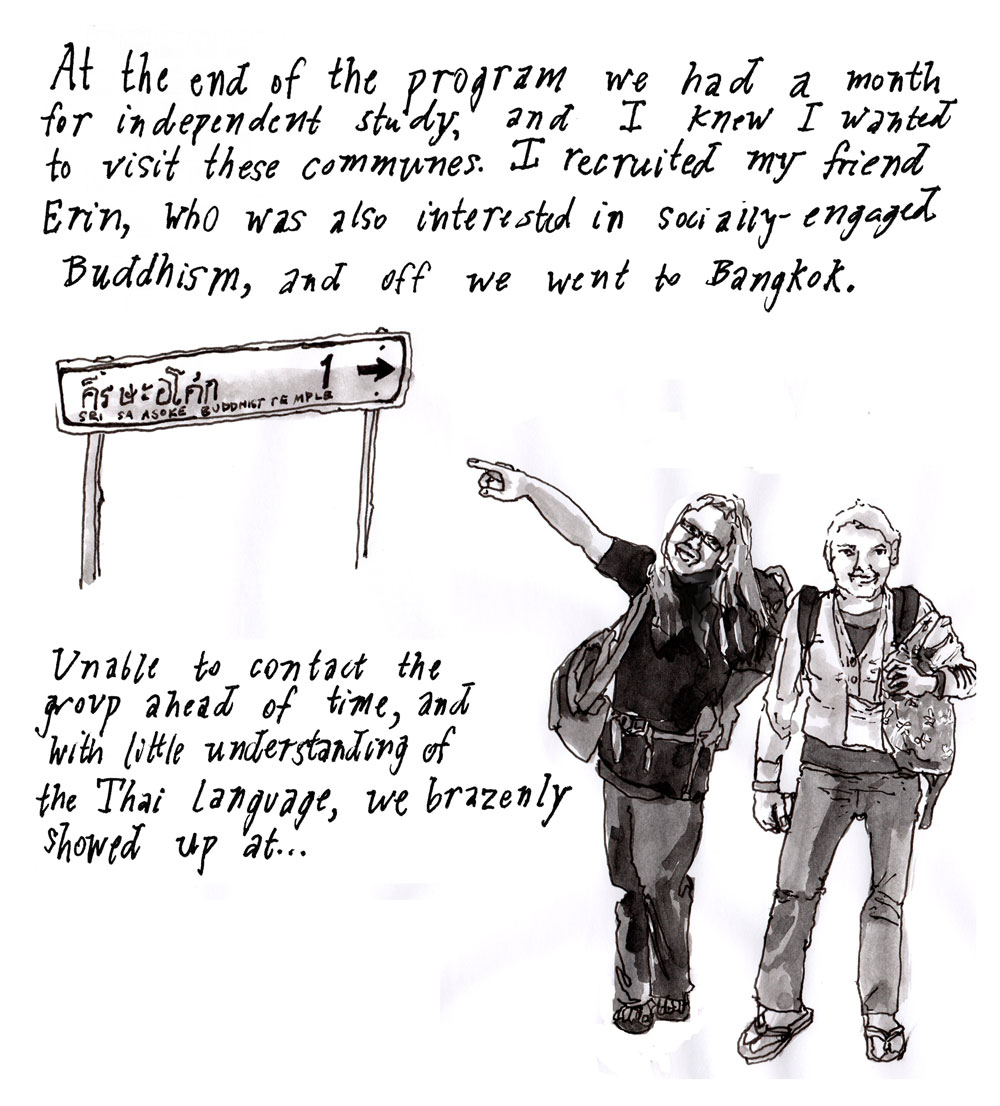 At the end of the program we had a month
for independent study, and I knew I wanted
to visit these communes. I recruited my friend
Erin, who was also interested in socially-engaged
Buddhism, and off we went to Bangkok.
ศีรษะอโศก 1 →
SRI SA ASOKE BUDDHIST TEMPLE
Unable to contact the
group ahead of time, and
with little understanding of
the Thai language, we brazenly
showed up at...